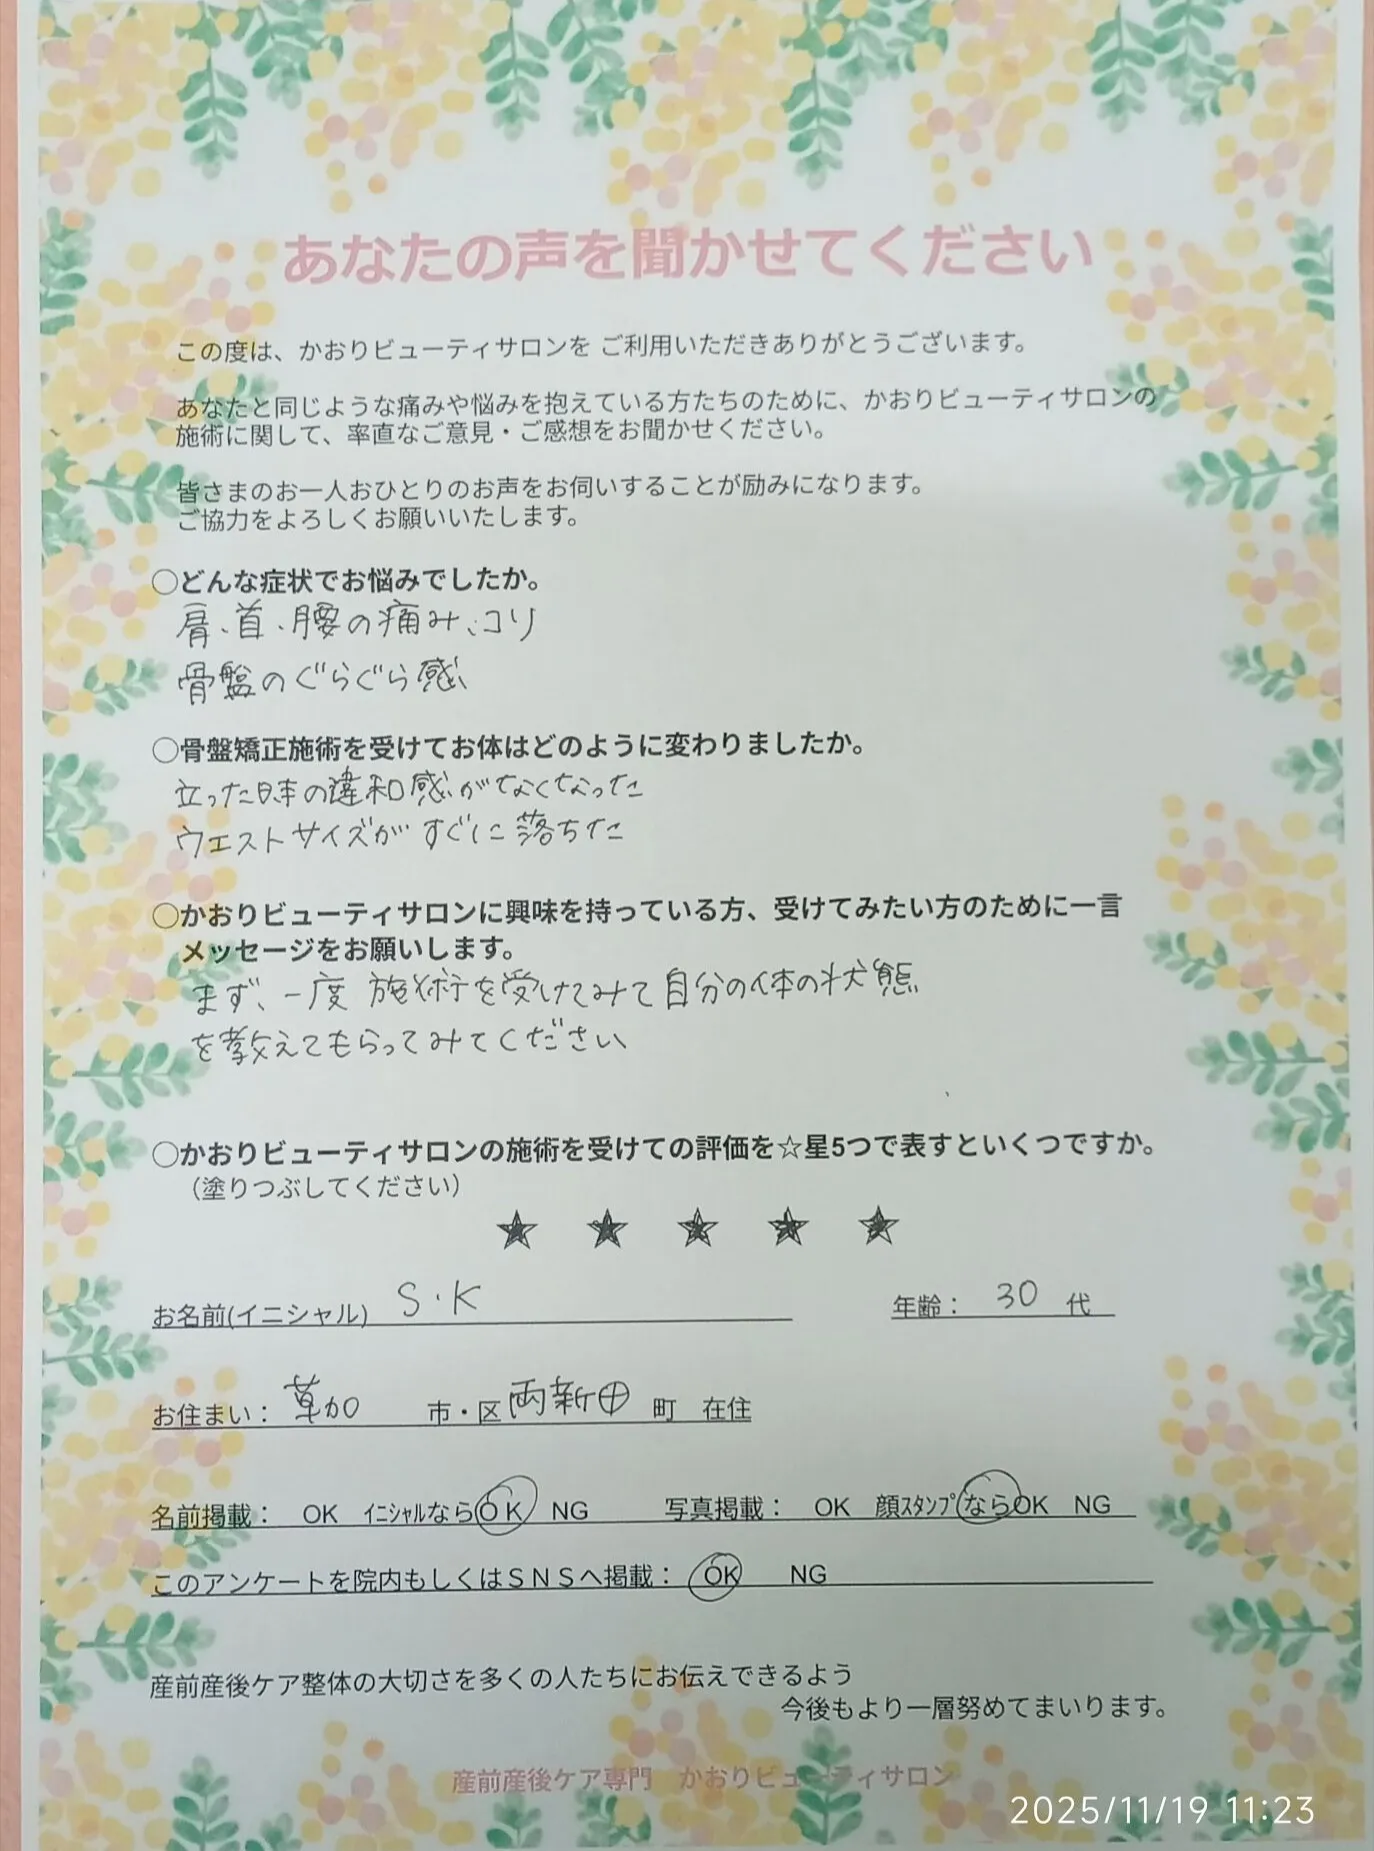 あなたの声を聞かせてください
この度は、かおりビューティサロンを ご利用いただきありがとうございます。
あなたと同じような痛みや悩みを抱えている方たちのために、かおりビューティサロンの
施術に関して、率直なご意見・ご感想をお聞かせください。
皆さまのお一人おひとりのお声をお伺いすることが励みになります。
ご協力をよろしくお願いいたします。
○どんな症状でお悩みでしたか。
肩、首、腰の痛み、コリ
骨盤のぐらぐら感
○骨盤矯正施術を受けてお体はどのように変わりましたか。
立った時の違和感がなくなった
ウエストサイズがすぐに落ちた
○かおりビューティサロンに興味を持っている方、受けてみたい方のために一言
メッセージをお願いします。
まず、一度 施術を受けてみて自分の体の状態
を教えてもらってみてください
○かおりビューティサロンの施術を受けての評価を☆星5つで表すといくつですか。
（塗りつぶしてください）
★ ★ ★ ★ ★
お名前(イニシャル) S・K 年齢： 30 代
お住まい： 草加 市・区 両新田 町 在住
名前掲載： OK ｲﾆｼｬﾙならOK NG 写真掲載： OK 顔ｽﾀﾝﾌﾟならOK NG
このアンケートを院内もしくはＳＮＳへ掲載： OK NG
産前産後ケア整体の大切さを多くの人たちにお伝えできるよう
今後もより一層努めてまいります。
産前産後ケア専門 かおりビューティサロン
2025/11/19 11:23